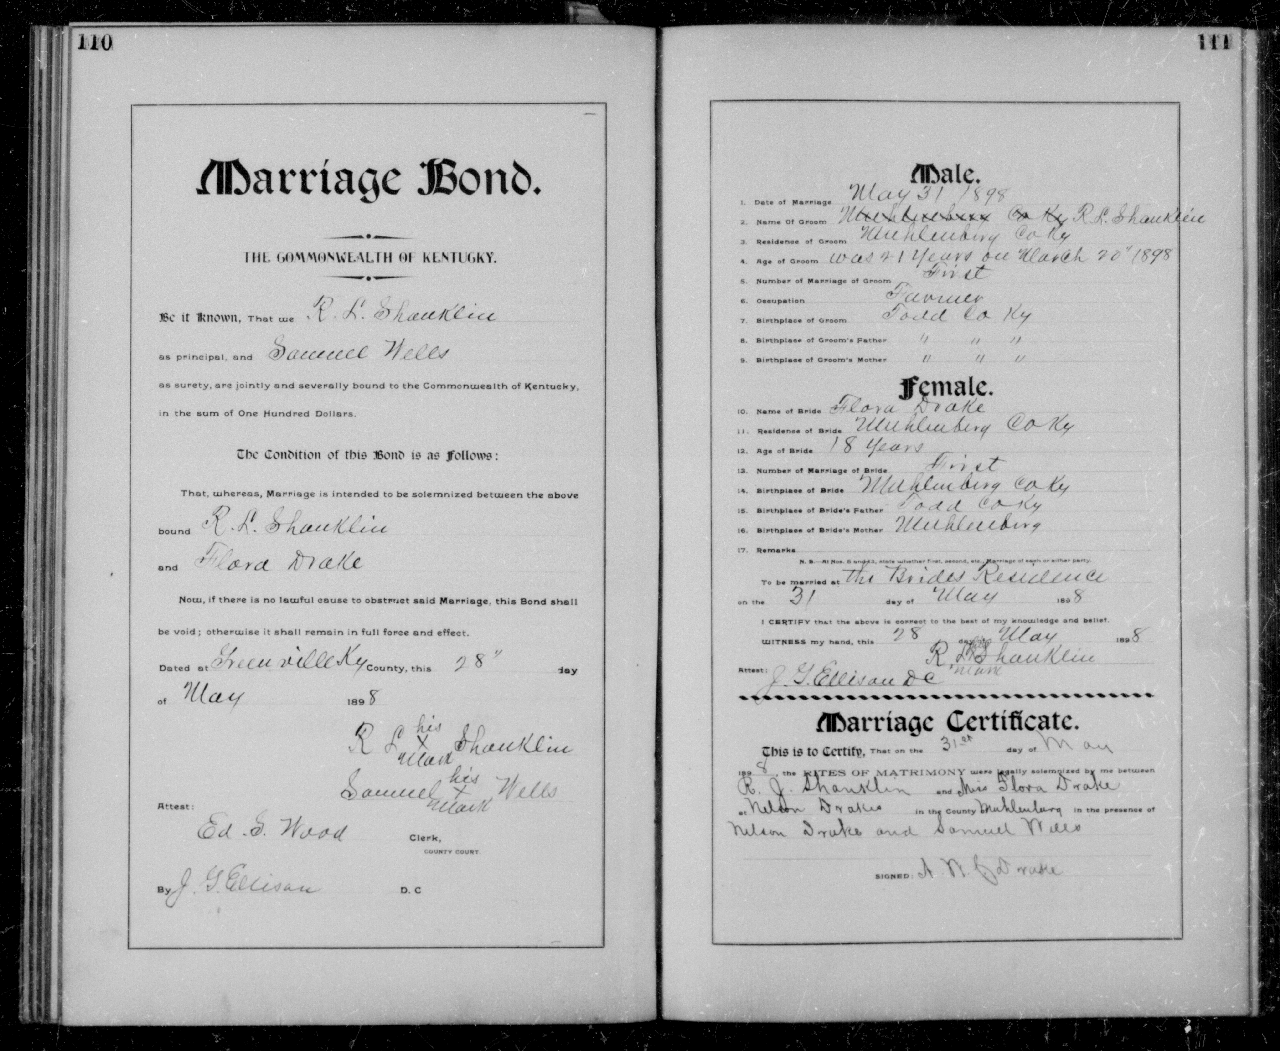 110
Marriage Bond.
THE COMMONWEALTH OF KENTUCKY.
Be it Known, That we R. L. Shanklin
as principal, and Samuel Wells
as surety, are jointly and severally bound to the Commonwealth of Kentucky,
in the sum of One Hundred Dollars.
The Condition of this Bond is as Follows:
That, whereas, Marriage is intended to be solemnized between the above
bound R. L. Shanklin
and Flora Drake
Now, if there is no lawful cause to obstruct said Marriage, this Bond shall
be void; otherwise it shall remain in full force and effect.
Dated at Greenville Ky County, this 28" day
of May 1898
his
R L x Shanklin
Mark
his
Samuel x Wells
Mark
Attest:
Ed. S. Wood Clerk,
COUNTY COURT.
By J. G. Ellison D. C
111
Male.
1. Date of Marriage May 31 1898
2. Name Of Groom Muhlenberg Co Ky R. L. Shanklin
3. Residence of Groom Muhlenberg Co Ky
4. Age of Groom was 21 Years on March 20" 1898
5. Number of Marriage of Groom First
6. Occupation Farmer
7. Birthplace of Groom Todd Co Ky
8. Birthplace of Groom's Father " " "
9. Birthplace of Groom's Mother " " "
Female.
10. Name of Bride Flora Drake
11. Residence of Bride Muhlenberg Co Ky
12. Age of Bride 18 Years
13. Number of Marriage of Bride First
14. Birthplace of Bride Muhlenberg Co Ky
15. Birthplace of Bride's Father Todd Co Ky
16. Birthplace of Bride's Mother Muhlenberg
17. Remarks
N. B.—At Nos. 5 and 13, state whether first, second, etc., Marriage of each or either party.
To be married at the Brides Residence
on the 31 day of May 1898
I CERTIFY that the above is correct to the best of my knowledge and belief.
WITNESS my hand, this 28 day of May 1898
his
R L x Shanklin
mark
Attest: J. G. Ellison D C
Marriage Certificate.
This is to Certify, That on the 31st day of May
1898, the RITES OF MATRIMONY were legally solemnized by me between
R. J. Shanklin and Miss Flora Drake
at Nelson Drakes in the County Muhlenburg in the presence of
Nelson Drake and Samuel Wells
SIGNED: Drake